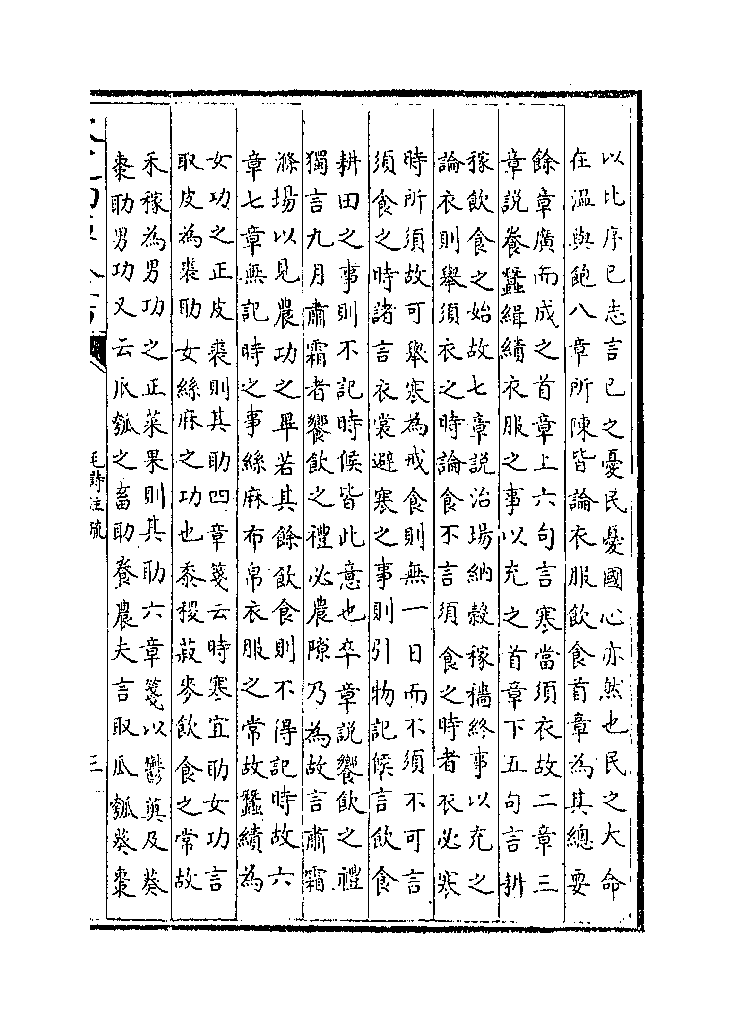 以比序已志言已之憂民憂國心亦然也民之大命
在溫與飽八章所陳皆論衣服飲食首章為其總要
餘章廣而成之首章上六句言寒當須衣故二章三
章說養蠶緝績衣服之事以充之首章下五句言耕
稼飲食之始故七章說治場納穀稼穡終事以充之
論衣則舉須衣之時論食不言須食之時者衣必寒
時所須故可舉寒為戒食則無一日而不須不可言
須食之時諸言衣裳避寒之事則引物記候言飲食
耕田之事則不記時候皆此意也卒章說饗飲之禮
獨言九月肅霜者饗飲之禮必農隙乃為故言肅霜
滌場以見農功之畢若其餘飲食則不得記時故六
章七章無記時之事絲麻布帛衣服之常故蠶績為
女功之正皮裘則其助四章箋云時寒宜助女功言
取皮為裘助女絲麻之功也黍稷菽麥飲食之常故
禾稼為男功之正菜果則其助六章箋以鬱薁及葵
棗助男功又云瓜瓠之畜助養農夫言取瓜瓠葵棗
毛詩注疏
三